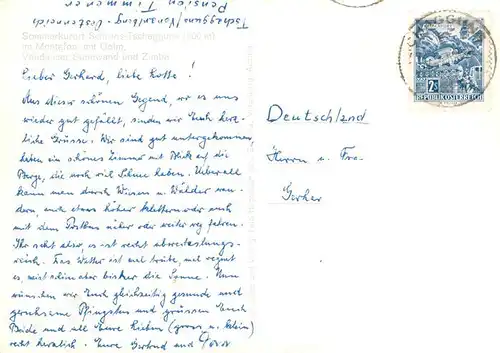 Pension Timmerer
Tschagguns / Vorarlberg - Oesterreich
Sommerkurort Schruns-Tschagguns (700 m)
im Montafon mit Golm,
Vandanser Steinwand und Zimba
Lieber Gerhard, liebe Lotte!
Aus dieser schönen Gegend, wo es uns
wieder gut gefällt, senden wir Euch herz-
liche Grüsse. Wir sind gut untergekommen,
haben ein schönes Zimmer mit Blick auf die
Berge, die noch viel Schnee haben. Überall
kann man durch Wiesen u. Wälder wan-
dern, auch etwas höher klettern oder auch
mit dem Postbus näher oder weiter weg fahren.
Ihr seht also, es ist recht abwechslungs-
reich. Das Wetter ist mal trübe, mal regnet
es, meist schien aber bisher die Sonne. Nun
wünschen wir Euch gleichzeitig gesunde und
geruhsame Pfingsten und grüssen Euch
Beide und all Eure Lieben (gross u. klein)
recht herzlich. Eure Gertrud und
Deutschland
Herrn u. Fra.
Gerher
2 S
REPUBLIK ÖSTERREICH